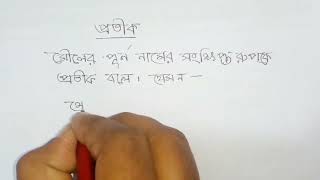 প্রতীক
মৌলের পূর্ন নামের সংক্ষিপ্ত রুপকে
প্রতীক বলে। যেমন —